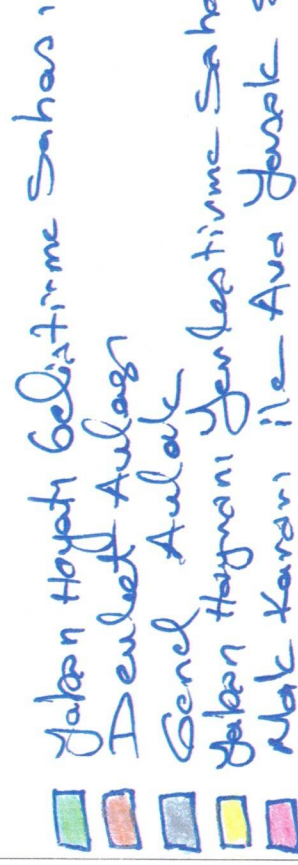 Yaban Hayatı Geliştirme Sahası
Devlet Avlağı
Genel Avlak
Yaban Hayvanı Yerleştirme Saha
Mak Kararı ile Ava Yasak